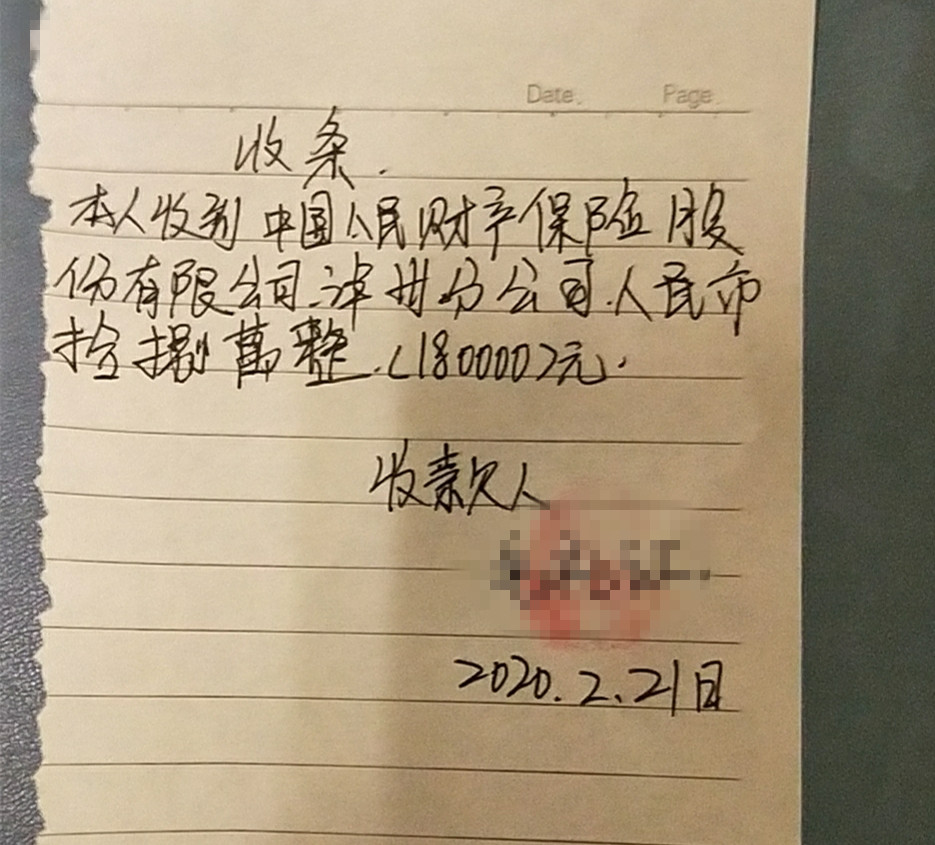 Date. Page.
收条.
本人收到中国人民财产保险股
份有限公司漳州分公司.人民币
拾捌萬整.(180000)元.
收款人
2020.2.21日